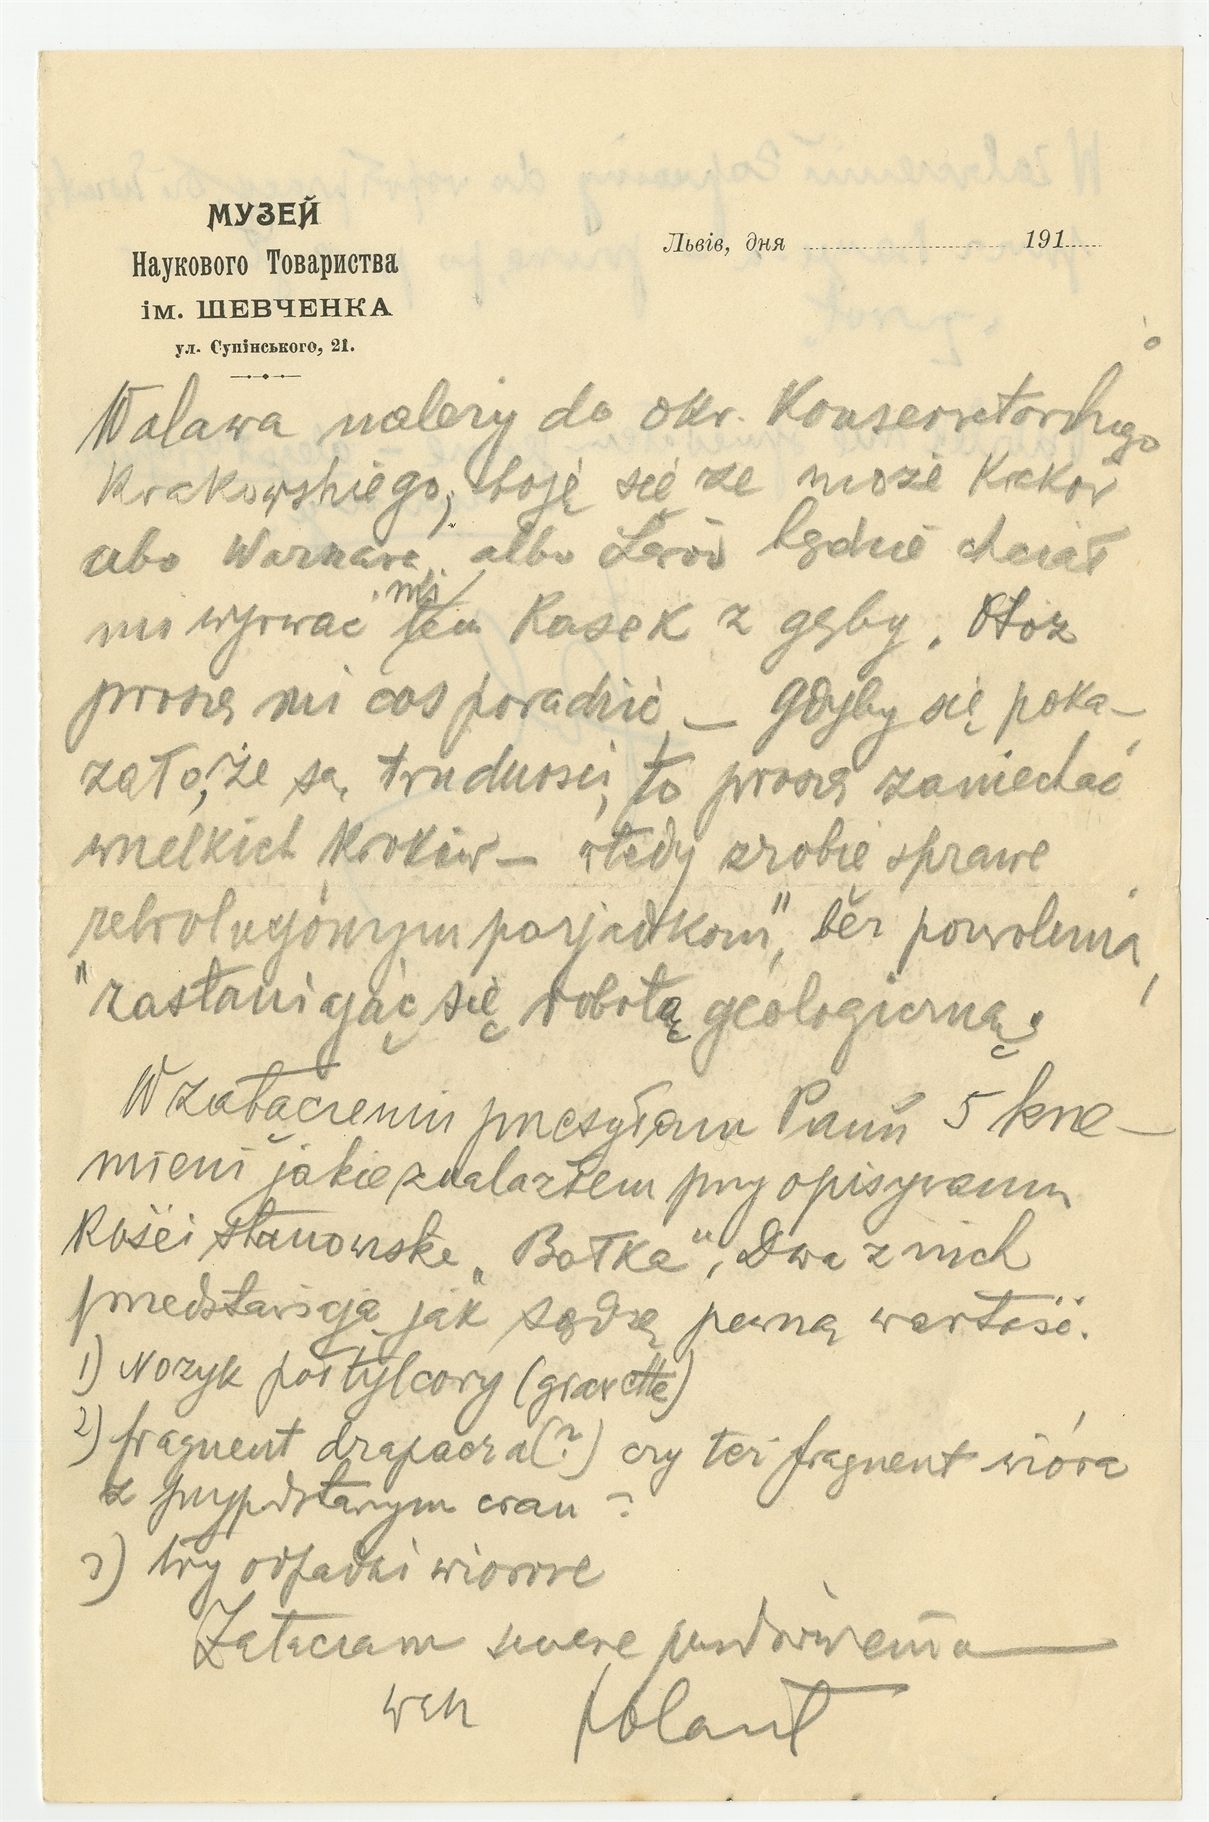 МУЗЕЙ
Наукового Товариства
ім. ШЕВЧЕНКА
ул. Супінського, 21.
Львів, дня 191
Walawa należy do okr. Konserwatorskiego
Krakowskiego, boję się że może Kraków
albo Warszawa, albo Lwów będzie chciał
mi wyrwać ten kąsek z gęby. Otoż
proszę mi coś poradzić — gdyby się poka-
zało, że są trudności, to proszę zaniechać
wszelkich kroków — wtedy zrobię sprawę
rebolucyjonnym porjadkom", bez pozwolenia,
"zastaniając się robotą geologiczną.
W załączeniu przesyłam Panu 5 krze-
mieni jakie znalazłem przy opisywaniu
Kości stanowiska „Bołka", Dwa z nich
przedstawiają jak sądzę pewną wartość.
1) Nożyk półtylcowy (gravette)
2) fragment drapacza (?) czy też fragment wióra
z przypdstawnym czau ?
3) trzy odpadki wiorowe
Załączam szczere pozdrowienia
Polant